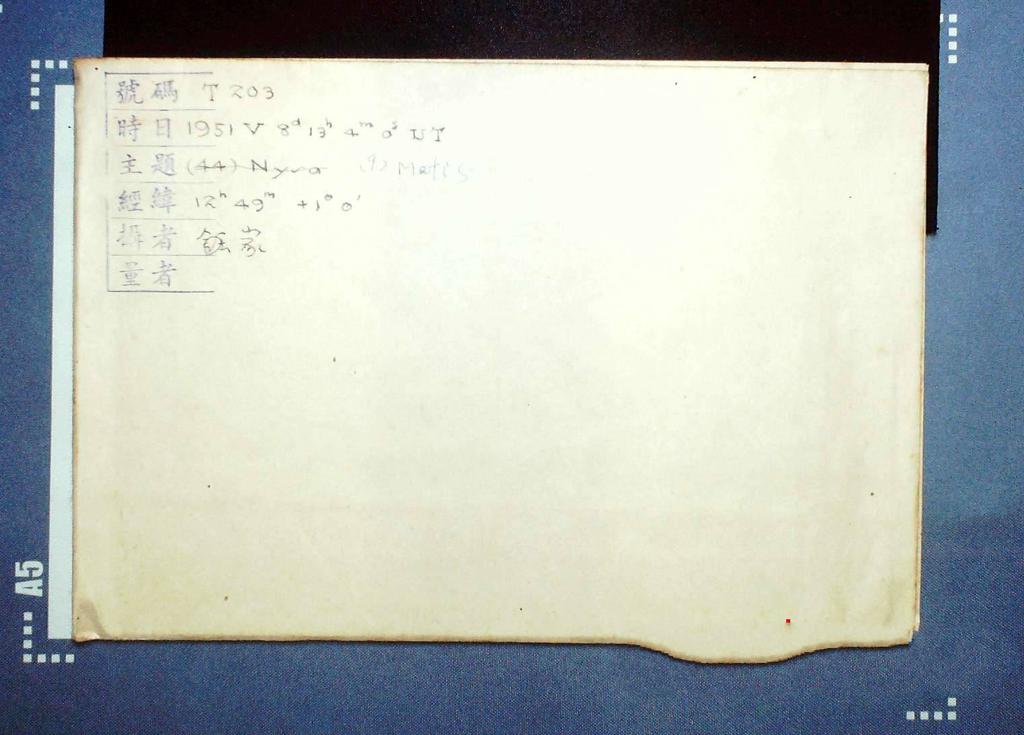 號碼 T 203
時日 1951 V 8ᵈ 13ʰ 4ᵐ 0ˢ UT
主題 (44) Nysa (9) Metis
經緯 12ʰ 49ᵐ +1° 0'
攝者 家
量者
A5